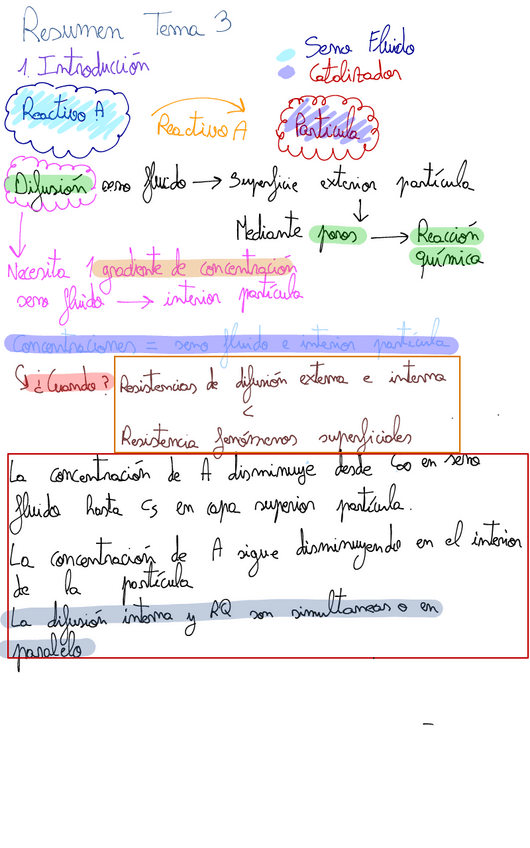 Resumen Tema 3
Seno Fluido
1. Introducción
Catalizador
Reactivo A
Reactivo A
Partícula
Difusión seno fluido → Superficie exterior partícula
↓
Mediante poros → Reacción
química
Necesita 1 gradiente de concentración
seno fluido → interior partícula
Concentraciones = seno fluido e interior partícula
¿Cuando?
Resistencias de difusión externa e interna
<
Resistencia fenómenos superficiales
La concentración de A disminuye desde C∞ en seno
fluido hasta Cs en capa superior partícula.
La concentración de A sigue disminuyendo en el interior
de la partícula
La difusión interna y RQ son simultaneas o en
paralelo